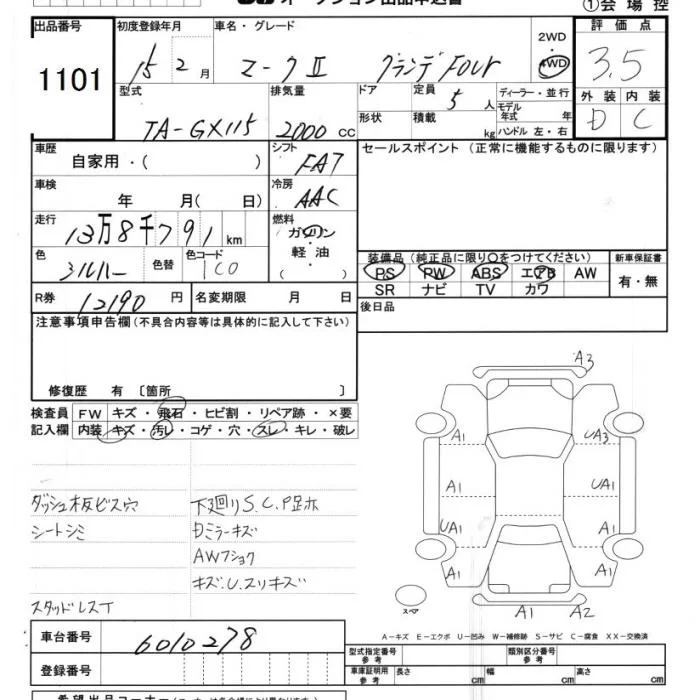 ①会場控
出品番号 1101
初度登録年月 15 2 月
車名・グレード マークⅡ グランデFOUR
2WD
4WD
評価点 3.5
外装 内装
D C
型式 TA-GX115
排気量 2000 cc
ドア
形状
定員 5 人
積載 kg
ディーラー・並行
モデル年式 年
ハンドル 左・右
車歴 自家用・( )
シフト FAT
セールスポイント(正常に機能するものに限ります)
車検 年 月( 日)
冷房 AAC
走行 13万8千791 km
燃料 ガソリン
軽油
( )
色 シルバー 色替 色コード 1C0
装備品(純正品に限り○をつけてください)
PS PW ABS エアB AW
SR ナビ TV カワ
新車保証書
有・無
R券 12190 円 名変期限 月 日
後日品
注意事項申告欄(不具合内容等は具体的に記入して下さい)
修復歴 有 〔箇所 〕
検査員 FW キズ・飛石・ヒビ割・リペア跡・×要
記入欄 内装 キズ・汚レ・コゲ・穴・スレ・キレ・破レ
ダッシュ板ビス穴
シートシミ
スタッドレスT
下廻りS.C.P足ホ
Dミラーキズ
AWフショク
キズ.U.スリキズ
A3
A1 UA3
A1 UA1
UA1 A1
A1 A1
スペア
A1 A2
A-キズ E-エクボ U-凹み W-補修跡 S-サビ C-腐食 XX-交換済
車台番号 6010278
登録番号
型式指定番号 参考
類別区分番号 参考
車庫証明用 参考 長さ cm 幅 cm 高さ cm